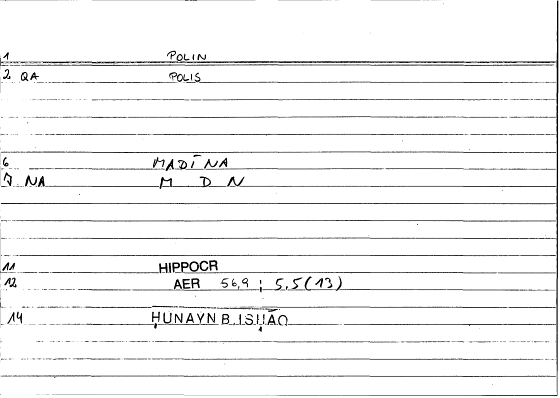 1 POLIN
2 QA POLIS
6 MADĪNA
7 NA M D N
11 HIPPOCR
12 AER 56,9 ; 5,5 (13)
14 ḤUNAYN B. ISḤĀQ